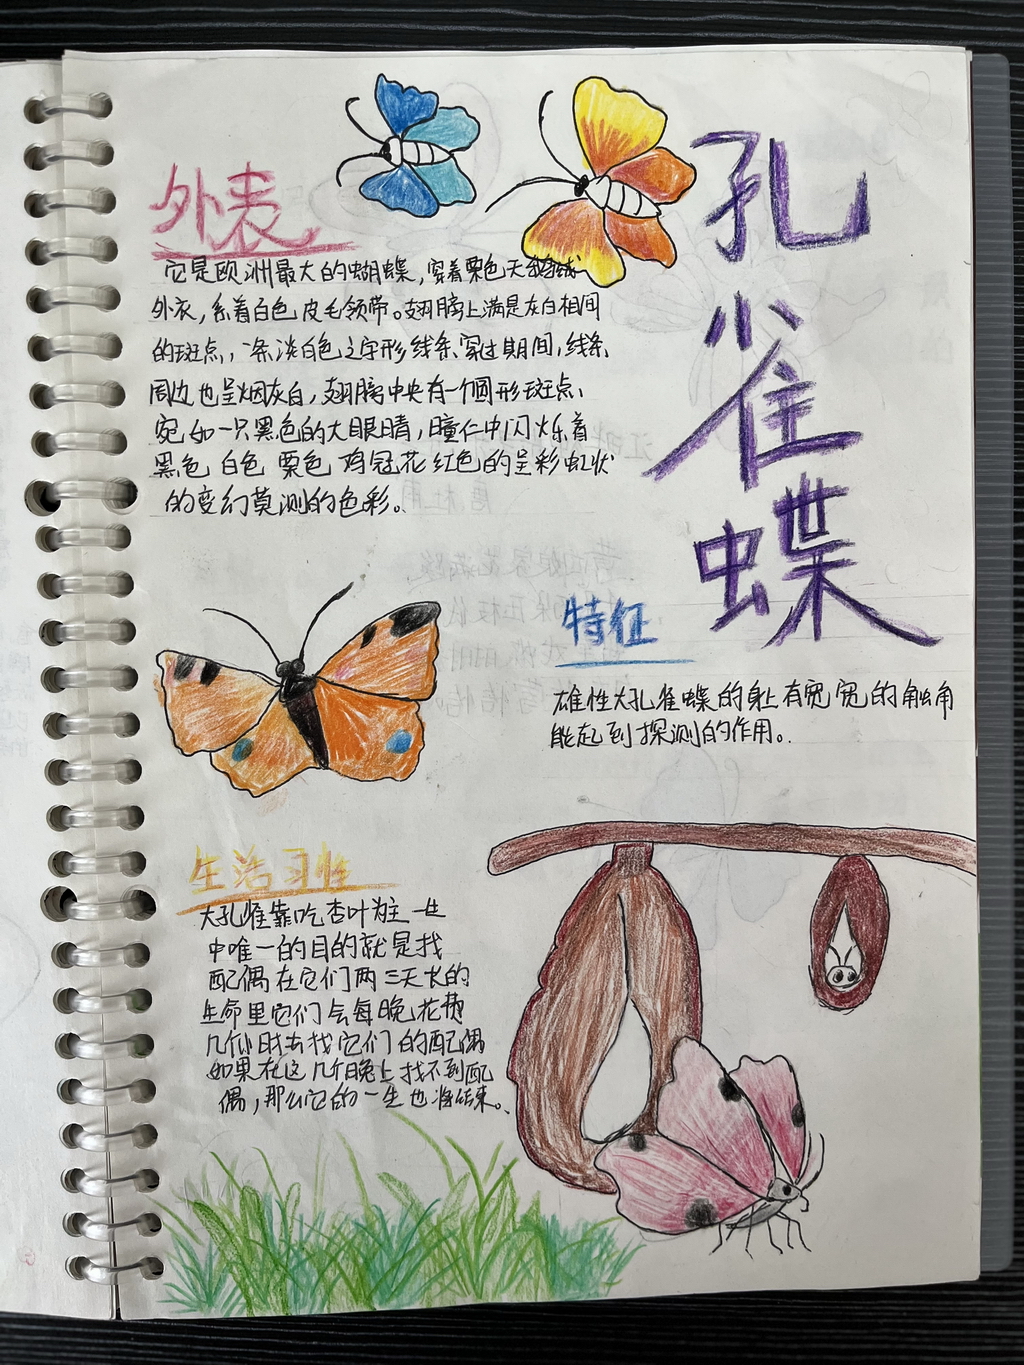 孔雀蝶
外表
它是欧洲最大的蝴蝶，穿着栗色天鹅绒
外衣，系着白色皮毛领带。翅膀上满是灰白相间
的斑点，一条淡白色之字形线条穿过期间，线条
周边也呈烟灰白，翅膀中央有一个圆形斑点，
宛如一只黑色的大眼睛，瞳仁中闪烁着
黑色 白色 栗色 鸡冠花红色的呈彩虹状
的变幻莫测的色彩。
特征
雄性大孔雀蝶的身上有宽宽的触角
能起到探测的作用。
生活习性
大孔雀靠吃杏叶为主 一生
中唯一的目的就是找
配偶 在它们两三天长的
生命里它们会每晚花费
几个小时去找它们的配偶
如果在这几个晚上找不到配
偶，那么它的一生也将结束。